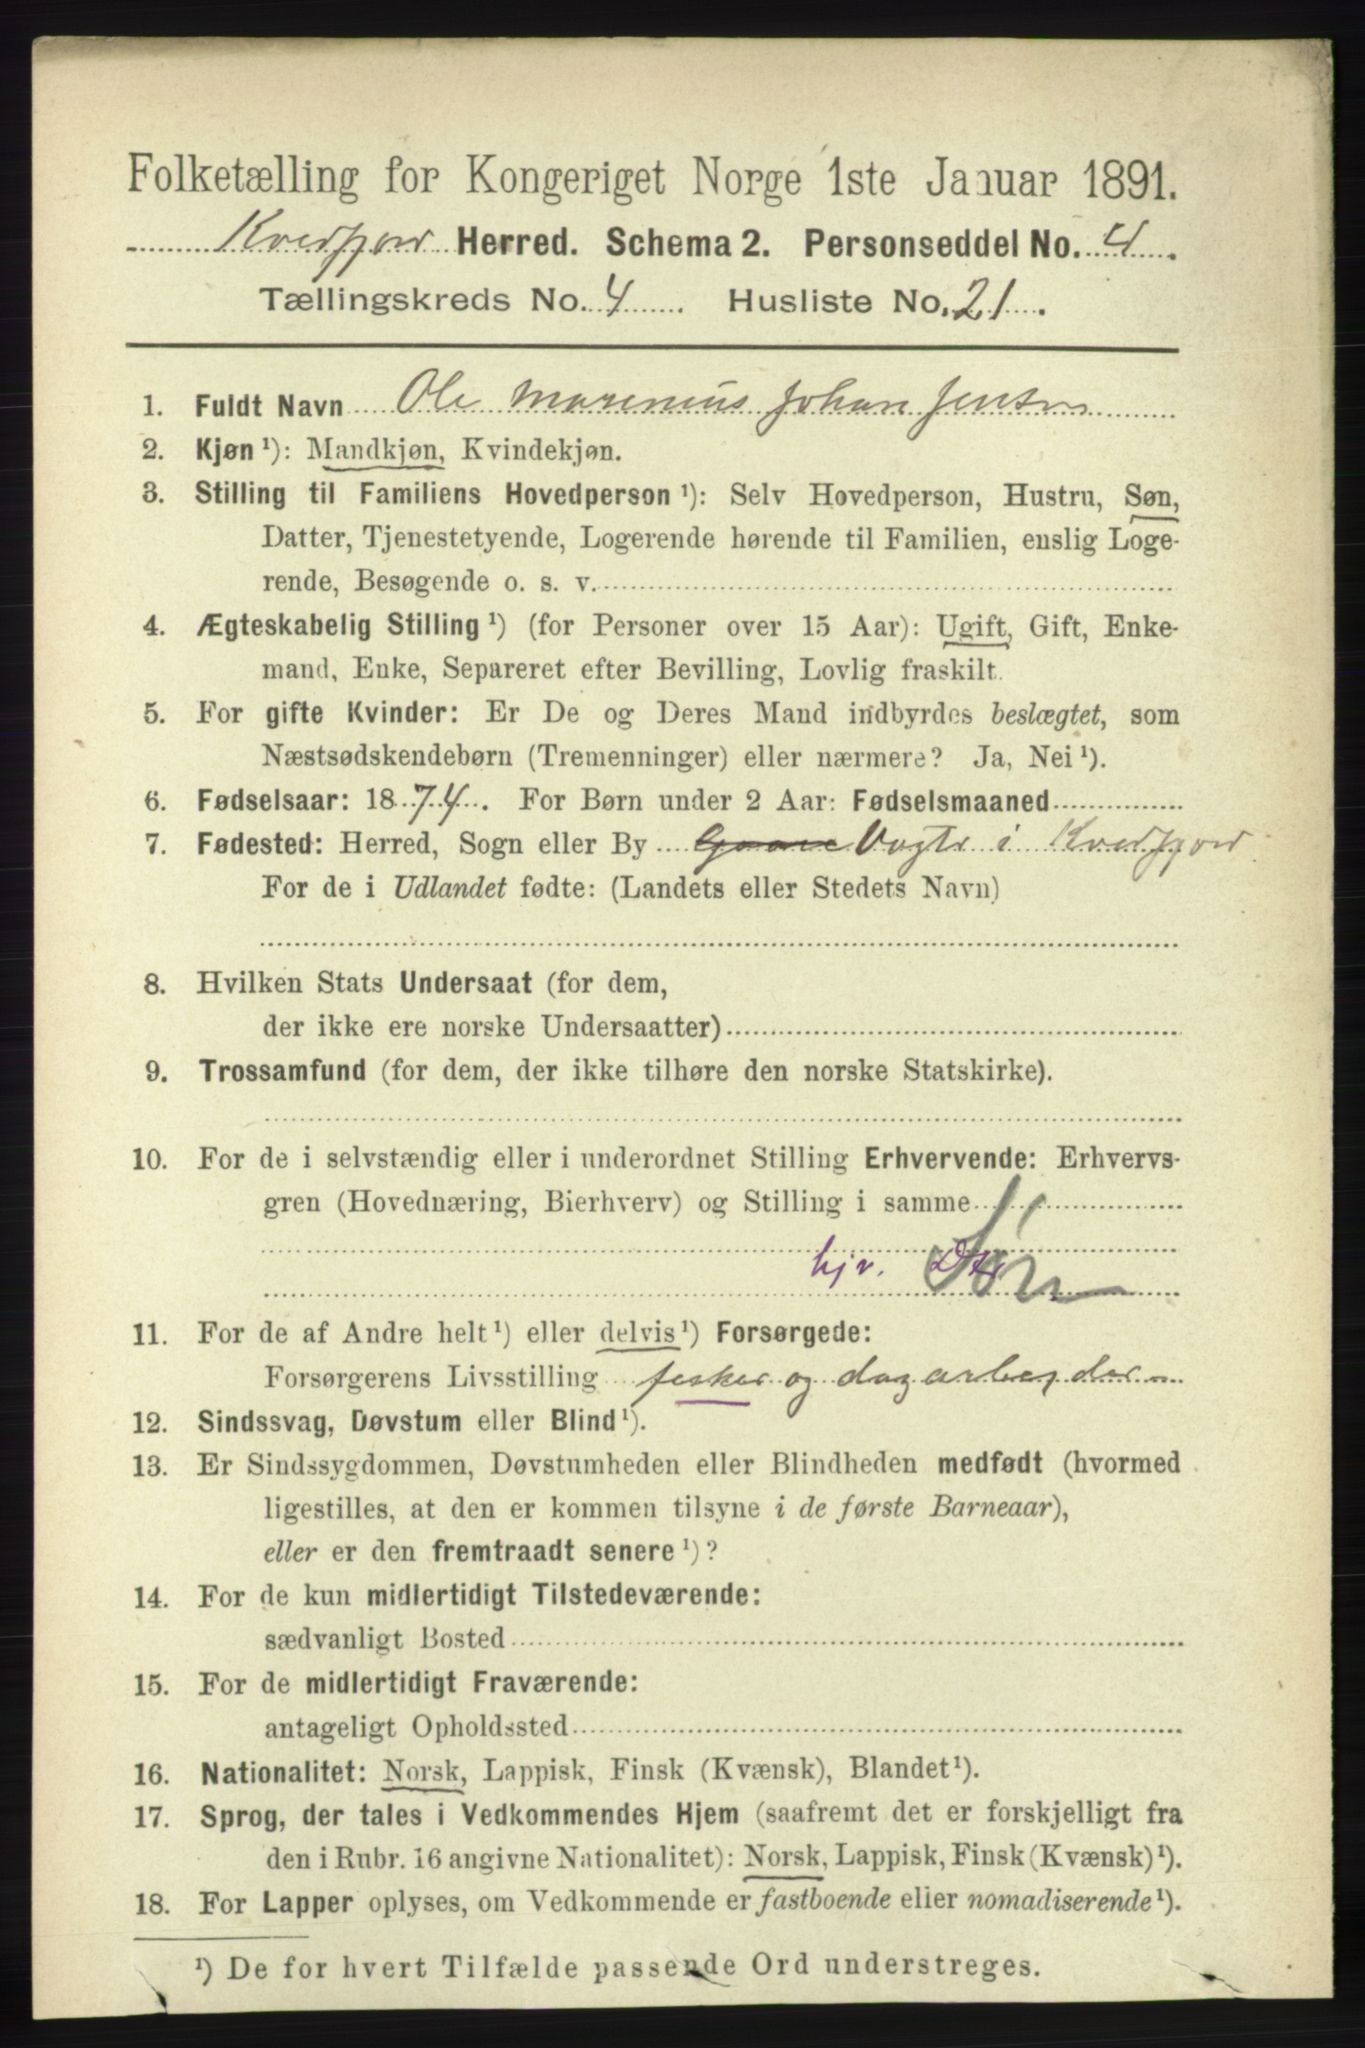 Folketælling for Kongeriget Norge 1ste Januar 1891.
Kvedfjord Herred. Schema 2. Personseddel No. 4.
Tællingskreds No. 4. Husliste No. 21.
1. Fuldt Navn Ole Marenius Johan Jensen
2. Kjøn ¹): Mandkjøn, Kvindekjøn.
3. Stilling til Familiens Hovedperson ¹): Selv Hovedperson, Hustru, Søn,
Datter, Tjenestetyende, Logerende hørende til Familien, enslig Loge-
rende, Besøgende o. s. v.
4. Ægteskabelig Stilling ¹) (for Personer over 15 Aar): Ugift, Gift, Enke-
mand, Enke, Separeret efter Bevilling, Lovlig fraskilt.
5. For gifte Kvinder: Er De og Deres Mand indbyrdes beslægtet, som
Næstsødskendebørn (Tremenninger) eller nærmere? Ja, Nei ¹).
6. Fødselsaar: 1874. For Børn under 2 Aar: Fødselsmaaned
7. Fødested: Herred, Sogn eller By Vogts i Kvedfjord
For de i Udlandet fødte: (Landets eller Stedets Navn)
8. Hvilken Stats Undersaat (for dem,
der ikke ere norske Undersaatter)
9. Trossamfund (for dem, der ikke tilhøre den norske Statskirke).
10. For de i selvstændig eller i underordnet Stilling Erhvervende: Erhvervs-
gren (Hovednæring, Bierhverv) og Stilling i samme
hjv. Søn
11. For de af Andre helt ¹) eller delvis ¹) Forsørgede:
Forsørgerens Livsstilling fisker og dagarbejder
12. Sindssvag, Døvstum eller Blind ¹).
13. Er Sindssygdommen, Døvstumheden eller Blindheden medfødt (hvormed
ligestilles, at den er kommen tilsyne i de første Barneaar),
eller er den fremtraadt senere ¹)?
14. For de kun midlertidigt Tilstedeværende:
sædvanligt Bosted
15. For de midlertidigt Fraværende:
antageligt Opholdssted
16. Nationalitet: Norsk, Lappisk, Finsk (Kvænsk), Blandet ¹).
17. Sprog, der tales i Vedkommendes Hjem (saafremt det er forskjelligt fra
den i Rubr. 16 angivne Nationalitet): Norsk, Lappisk, Finsk (Kvænsk) ¹).
18. For Lapper oplyses, om Vedkommende er fastboende eller nomadiserende ¹).
¹) De for hvert Tilfælde passende Ord understreges.